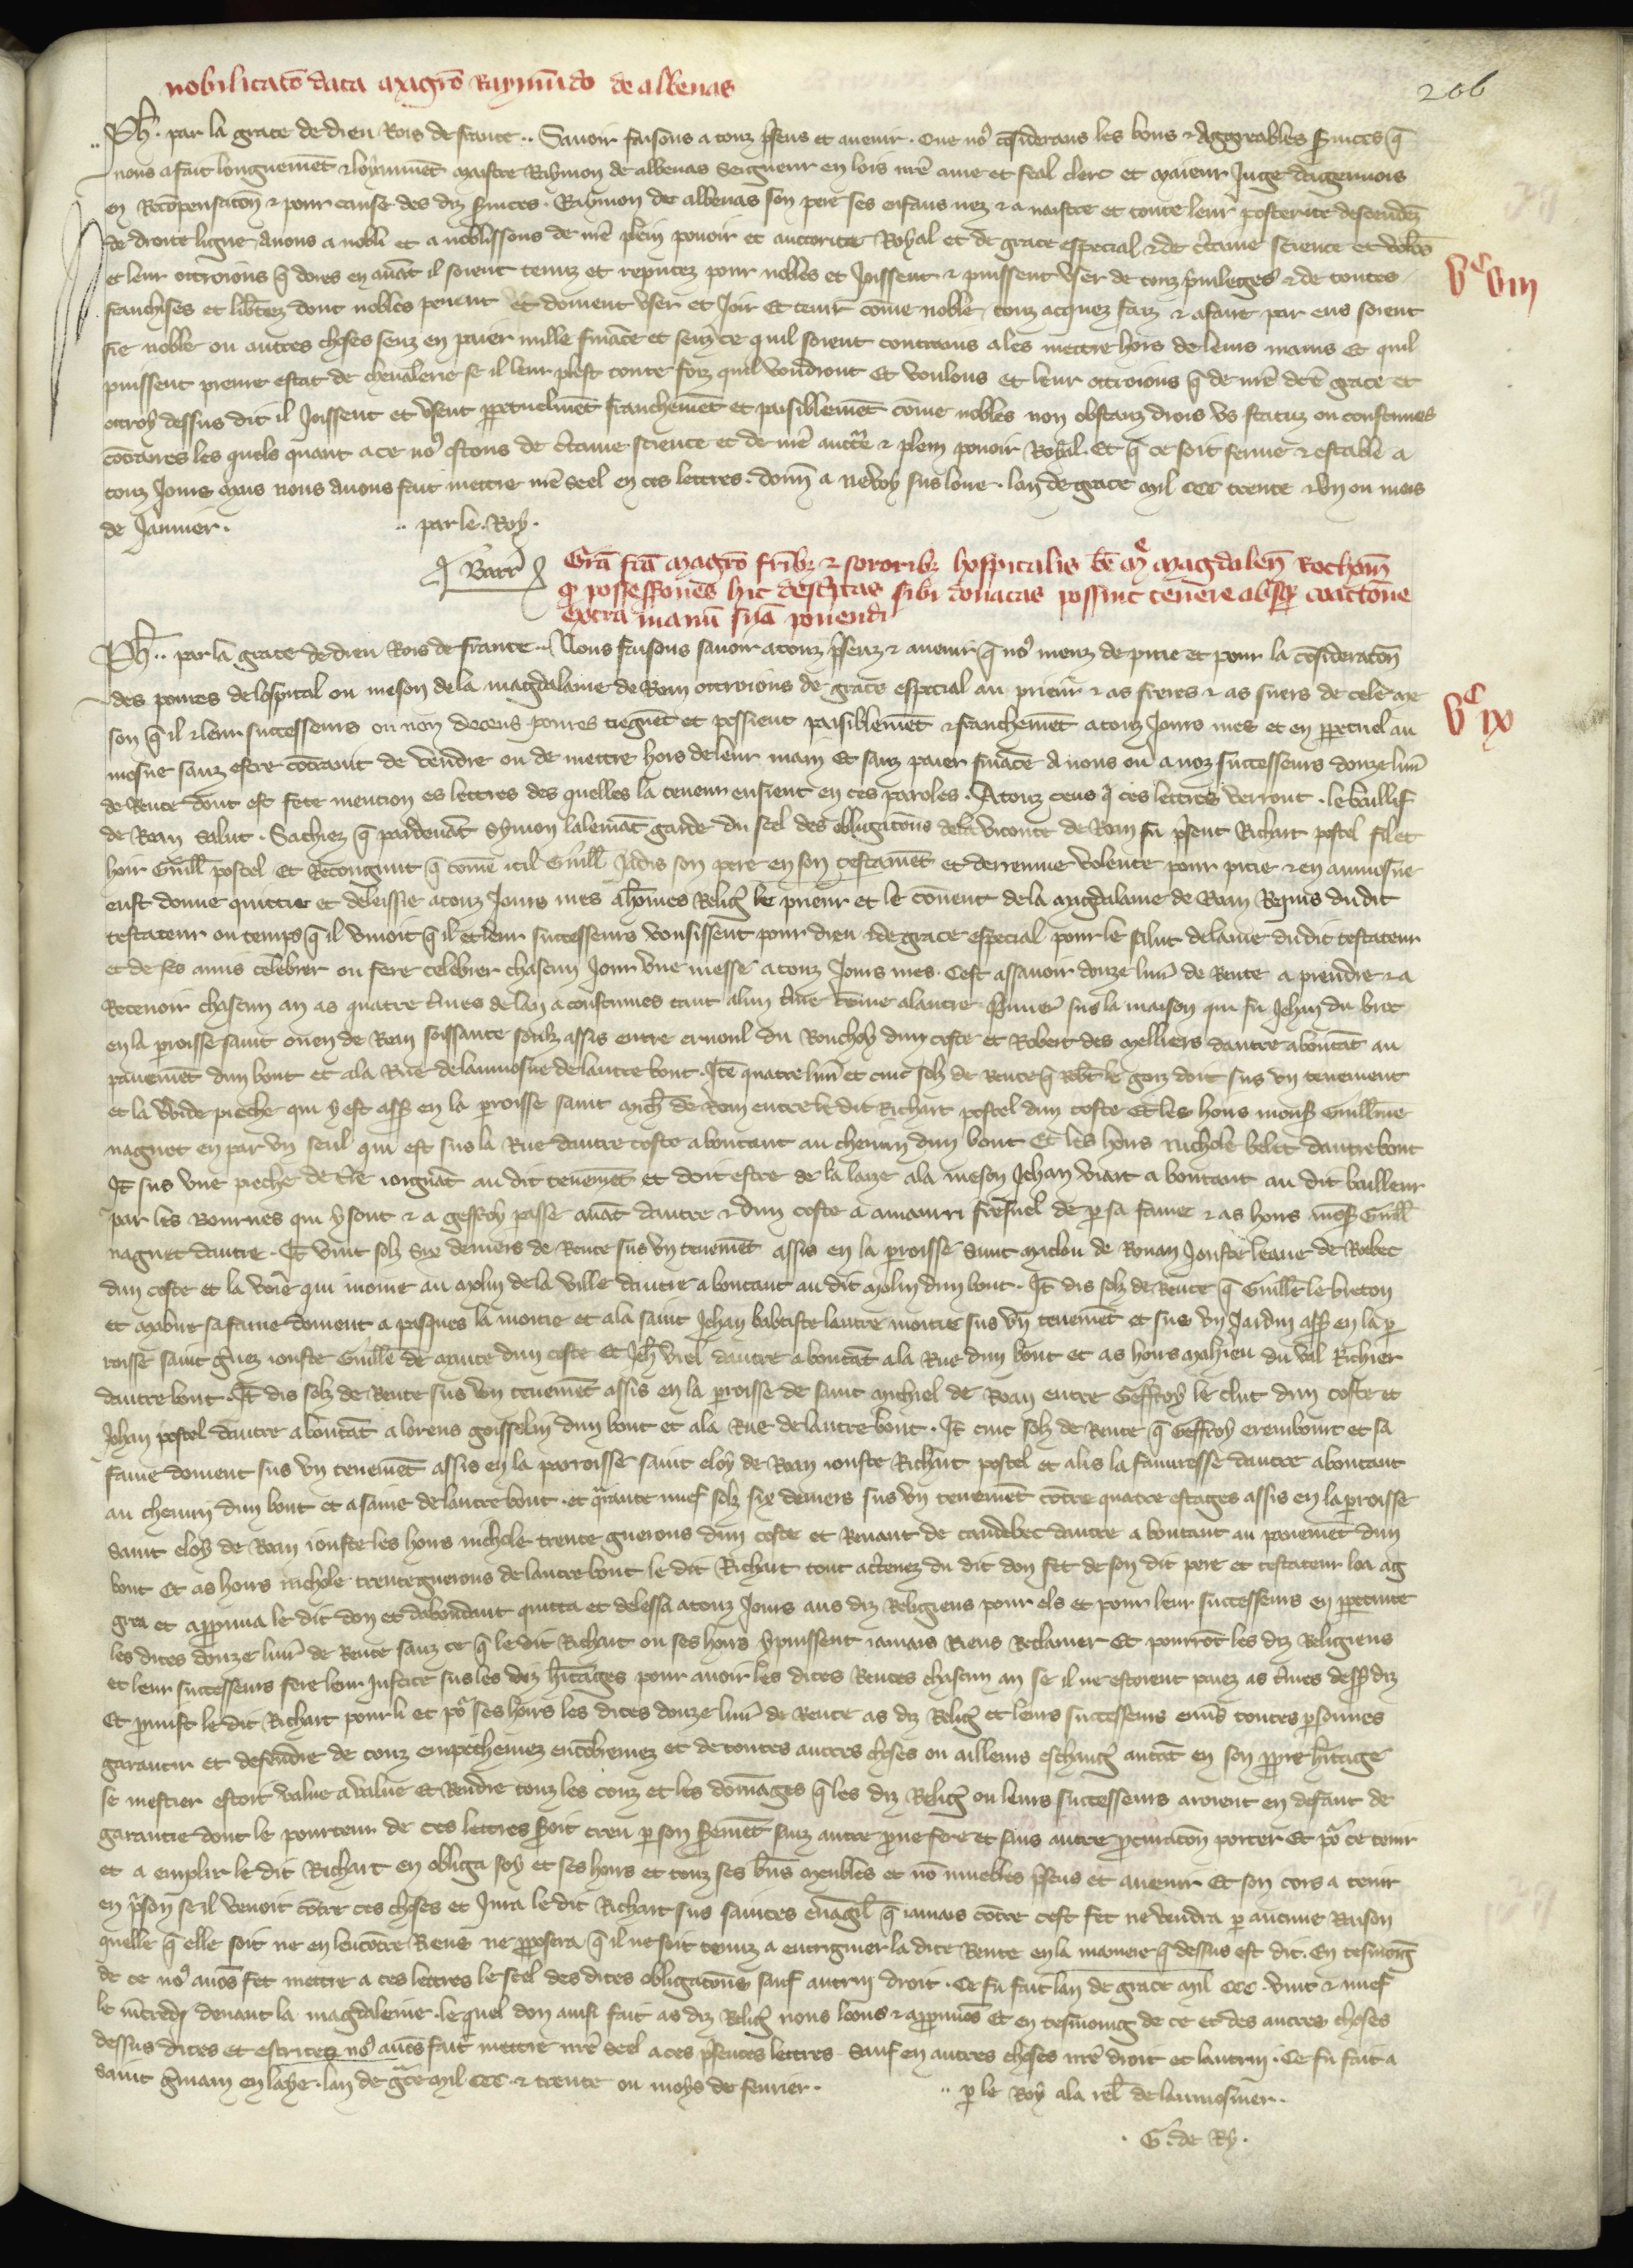 nobilitatō data magrō Raymūdo de albenas
206
Ph̄. par la grace de dieu Rois de france.. Sauoir faisons a touz p̄sens et auenir. Que no9 cōsiderans les bons & aggreables seruices q̄
nous a fait longuemēt & loyaumēt maistre Raymon de albenas Seigneur en lois nr̄e ame et feal clerc et maieur Juge dagennois
en Recōpensatōn & pour cause des diz seruices. Raymon de albenas son pere ses enfans nez & a naistre et toute leur posterite descendēz
de droite ligne auons anobli et anoblissons de nr̄e plein pouoir et auctorite Royal et de grace especial & de c̄taine science et volōs
et leur ottroions q̄ dores en auāt il soient tenuz et reputez pour nobles et Joissent & puissent vser de touz priuileges & de toutes
Vc viii
franchises et lib̄tez dont nobles peuent et doiuent vser et Joir Et tenir cōme noble touz acquez faiz & afaire par eus soient
fie noble ou autres choses senz en paier nulle fināce et senz ce quil soient contrains a les mettre hors de leurs mains Et quil
puissent prenre estat de cheualerie se il leur plest toute foiz quil voudront Et voulons et leur ottroions q̄ de nr̄e dc̄e grace et
ottroy dessus dit il Joissent et vsent ppetuelmēt franchemēt et paisiblemēt cōme nobles non obstanz drois vs statuz ou constumes
cōtraires les quels quant a ce no9 ostons de c̄taine science et de nr̄e auctte & plein pouoir Royal. Et q̄ ce soit ferme & estable a
touz Jours mais nous auons fait mettre nr̄e Seel en ces lettres. donn̄ a neuoy sus loire. lan de grace mil ccc trente & vn ou mois
de Januier. .. par le Roy.
Barr̄
Grā fcā magrō fr̄ibz & sororibz hospitalis bē mᵉ magdalen̄ Rothom̄
q̄ possessiones hic descriptas sibi donatas possint tenere absqz coactōne
extra manū suā ponendi
Ph̄.. par la grace de dieu Rois de france. Nous faisons sauoir a touz p̄senz & auenir q̄ no9 meuz de pitie et pour la cōsideratōn
des poures de lospital ou meson de la magdalaine de Roan ottroions de grace especial au prieur & as freres & as suers de cele me
Vc ix
son q̄ il & leur successeurs ou non de ceus poures tiegnēt et possient paisiblemēt & franchemēt a touz Jours mes et en ppetuel au
mosne sanz estre cōtraint de vendre ou de mettre hors de leur main Et sanz paier fināce a nous ou a noz successeurs donze liur̄
de Rente dont est fete mention es lettres des quelles la teneur ensient en ces paroles. A touz ceus q̄ ces lettres verront. le baillif
de Roan salut. Sachiez q̄ pardeuāt Symon lalemāt garde du seel des obligatōns de la viconte de Roan fu p̄sent Richart postel fil et
hoir Guill̄ postel et Recongnut q̄ come icil Guill̄ Jadis son pere en son testamēt et derreniue volente pour pitie & en aumosne
eust donne quittie et delaissie a touz Jours mes a hōmes Religᵒ le prieur et le cōuent de la magdalaine de Roan Requis du dit
testateur ou temps q̄ il viuoit q̄ il et leur successeurs vousissent pour dieu & de grace especial pour le salut de lame du dit testateur
et de ses amis celebrer ou fere celebrer chascun Jour vne messe a touz Jours mes. Cest assauoir donze liur̄ de Rente a prendre & a
Receuoir chascun an as quatre t̄mes de lan a constumes tant alun t̄me cōme alautre. Primer̄ sus la maison qui fu Jehan du brec
en la proisse saint ouen de Roan soissante soulz assis entre ernoul du Ronchoy dun coste et Robert des melliers dautre aboutāt au
pauemēt dun bout et a la Rue de laumosne de lautre bout. Itē quatre liur̄ et cinc solz de Rente q̄ Robt le gorz doit sus vn tenement
et la wide pieche qui y est assis en la proisse saint mich̄ de Roan entre le dit Richart postel dun coste et les hoirs mons̄ Guill̄me
naguet en par vn seul qui est sus la Rue dautre coste aboutant au chemin dun bout Et les hoirs nichole belet dautre bout
It̄ sus vne pieche de t̄re ioignāt au dit tenemēt et doit estre de la laize a la meson Jehan viart aboutant au dit bailleur
par les Bournes qui y sont & a geffroy passe auāt dautre & dun coste a amaurri fresnel de p sa fame & as hoirs mons̄ Guill̄
naguet dautre. Et vint solz six deniers de Rente sus vn tenemēt assis en la proisse saint maclou de Rouan Jouste leaue de Robec
dun coste et la voie qui moine au molin de la ville dautre aboutant au dit molin dun bout. It̄ dis solz de Rente q̄ Guill̄e le breton
et mabire sa fame doiuent a pasques la moitie et a la saint Jehan babtiste lautre moitie sus vn tenemēt et sus vn Jardin assis en la p
roisse saint geruez iouste Guill̄e de mante dun coste et Jeh̄ viel dautre aboutāt a la Rue dun bout et as hoirs mahieu du val Richier
dautre bout. It̄ dis solz de Rente sus vn tenemēt assis en la proisse de saint michiel de Roan entre Geffroy le clut dun coste et
Jehan postel dautre aboutāt a lorens goisselin dun bout et a la Rue de lautre bout. It̄ cinc solz de Rente q̄ Geffroy erembourc et sa
fame doiuent sus vn tenemēt assis en la parroisse saint eloy de Roan iouste Richart postel et alis la fauuresse dautre aboutant
au chemin dun bout et a saine de lautre bout. et q̄rante nuef solz six deniers sus vn tenemēt cōtre quatre estages assis en la proisse
saint eloy de Roan iouste les hoirs nichole trente guerons dun coste et Renaut de caudebec dautre aboutant au pauemēt dun
bout Et as hoirs nichole trenteguerons de lautre bout le dit Richart tout ac̄tenez du dit don fet de son dit pere et testateur loa ag
grea et approuua le dit don et dabondant quitta et delessa a touz Jours aus diz Religieus pour els et pour leur successeurs en ppetuite
les dites donze liur̄ de Rente sanz ce q̄ le dit Richart ou ses hoirs y puissent iamais Riens Reclamer Et pourrōt les diz Religieus
et leur successeurs fere leur Justice sus les diz h̄itages pour auoir les dites Rentes chascun an se il ne estoient paiez as t̄mes dess̄diz
Et promist le dit Richart pour li et po9 ses hoirs les dites donze liur̄ de Rente as diz Religᵒ et leurs successeurs enuers toutes psonnes
garantir et defendre de touz empechemez encōbremez et de toutes autres choses ou ailleurs eschangᵒ autāt en son ppre h̄itage
se mestier estoit value a value et Rendre touz les couz et les domages q̄ les diz Religᵒ ou leurs successeurs aroient en defaut de
garantie dont le pourteur de ces lettres seroit creu p son s̄emēt sanz autre proue fere et sans autre pcuratōn porter Et po9 ce tenir
et a emplir le dit Richart en obliga soy et ses hoirs et touz ses bn̄s meubles et nō muebles p̄sens et auenir Et son cors a tenir
en p̄son se il venoit cōtre ces choses et Jura le dit Richart sus saintes euāgil̄ q̄ iamais cōtre cest fet ne vendra p aucune Raison
quelle q̄ elle soit ne en lencōtre Riens ne pposera q̄ il ne soit tenuz a enterigner la dite Rente en la maniere q̄ dessus est dit. En tesmoing
de ce no9 auōs fet mettre a ces lettres le seel des dites obligatōns sauf autrui droit. Ce fu fait lan de grace mil ccc. vint & nuef
le m̄credi deuant la magdaleine. le quel don ainsi fait as diz Religᵒ nous loons & approuuōs Et en tesmoing de ce et des autres choses
dessus dites et escrites no9 auōs fait mettre nr̄e Seel a ces p̄sentes lettres sauf en autres choses nr̄e droit et lautrui. Ce fu fait a
saint ḡmain en laye. lan de grace mil ccc. & trente ou moys de feurier. .. p le Roy a la rel̄ de laumosnier.
. G. de Ry.